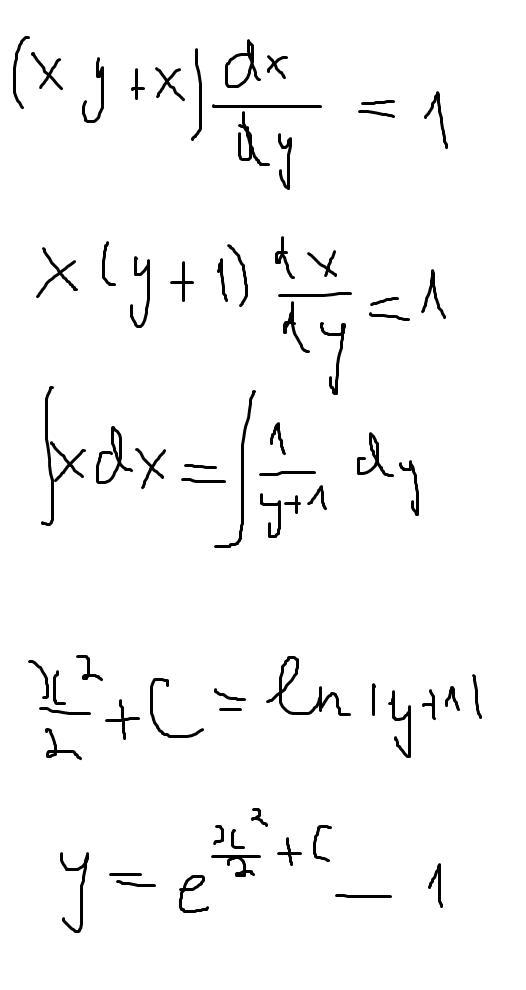 (xy+x) dx/dy = 1
x(y+1) dx/dy = 1
∫xdx = ∫ 1/(y+1) dy
x²/2 + C = ln|y+1|
y = e^(x²/2 + C) - 1